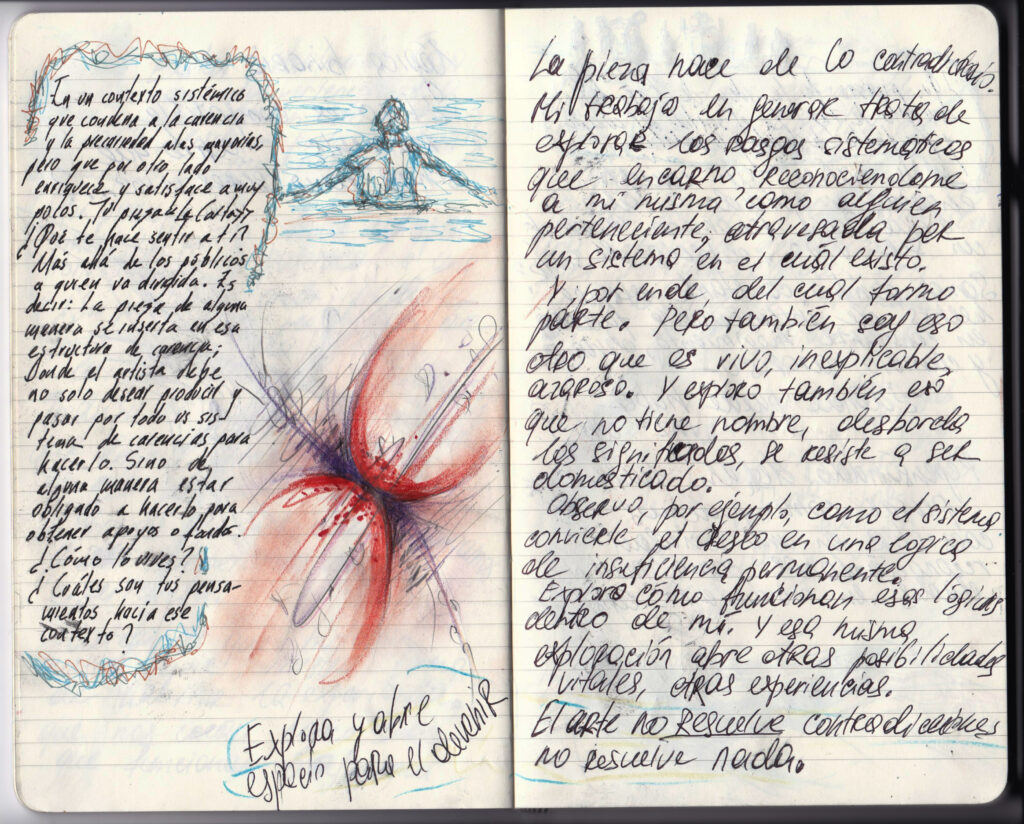 En un contexto sistémico
que condena a la carencia
y la precariedad a las mayorías,
pero que por otro lado
enriquece y satisface a muy
pocos. Tu pieza de la
¿Qué te hace sentir a ti?
Más allá de los públicos
a quien va dirigida. Es
decir: La pieza de alguna
manera se inserta en esa
estructura de carencia;
Donde el artista debe
no solo desear producir y
pasar por todo un sis-
tema de carencias para
hacerlo. Sino de
alguna manera estar
obligado a hacerlo para
obtener apoyos o fondos.
¿Cómo lo vives?
¿Cuáles son tus pensa-
mientos hacia ese
contexto?
Explora y abre
espacio para el devenir
La pieza nace de lo contradictorio.
Mi trabajo en general trata de
explorar los rasgos sistemáticos
que encarno, reconociéndome
a mi misma como alguien
perteneciente, atravesada por
un sistema en el cual existo.
Y, por ende, del cual formo
parte. Pero también soy eso
otro que es vivo, inexplicable,
azaroso. Y exploro también eso
que no tiene nombre, desborda
los significados, se resiste a ser
domesticado.
Observo, por ejemplo, como el sistema
convierte el deseo en una lógica
de insuficiencia permanente.
Exploro como funcionan esas lógicas
dentro de mí. Y esa misma
exploración abre otras posibilidades
vitales, otras experiencias.
El arte no resuelve contradicciones
no resuelve nada.